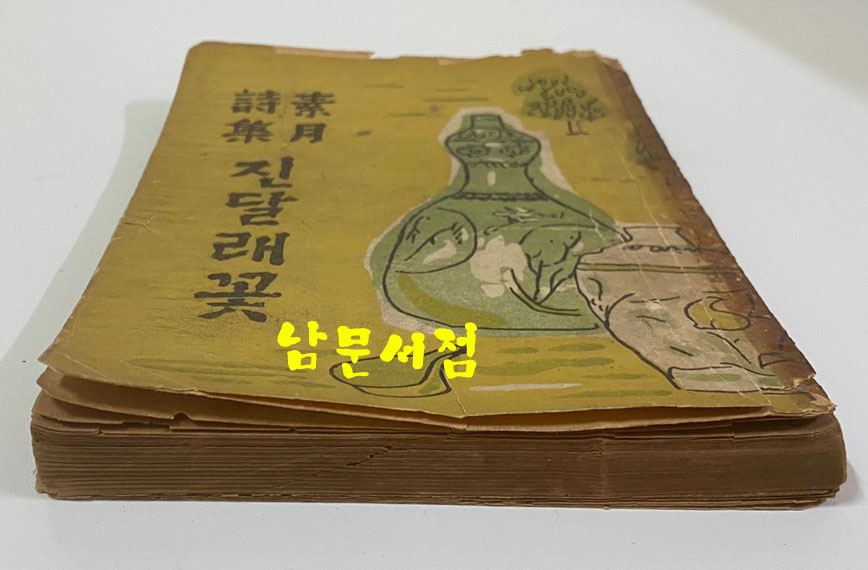 素月
詩集
진달래꽃
남문서점